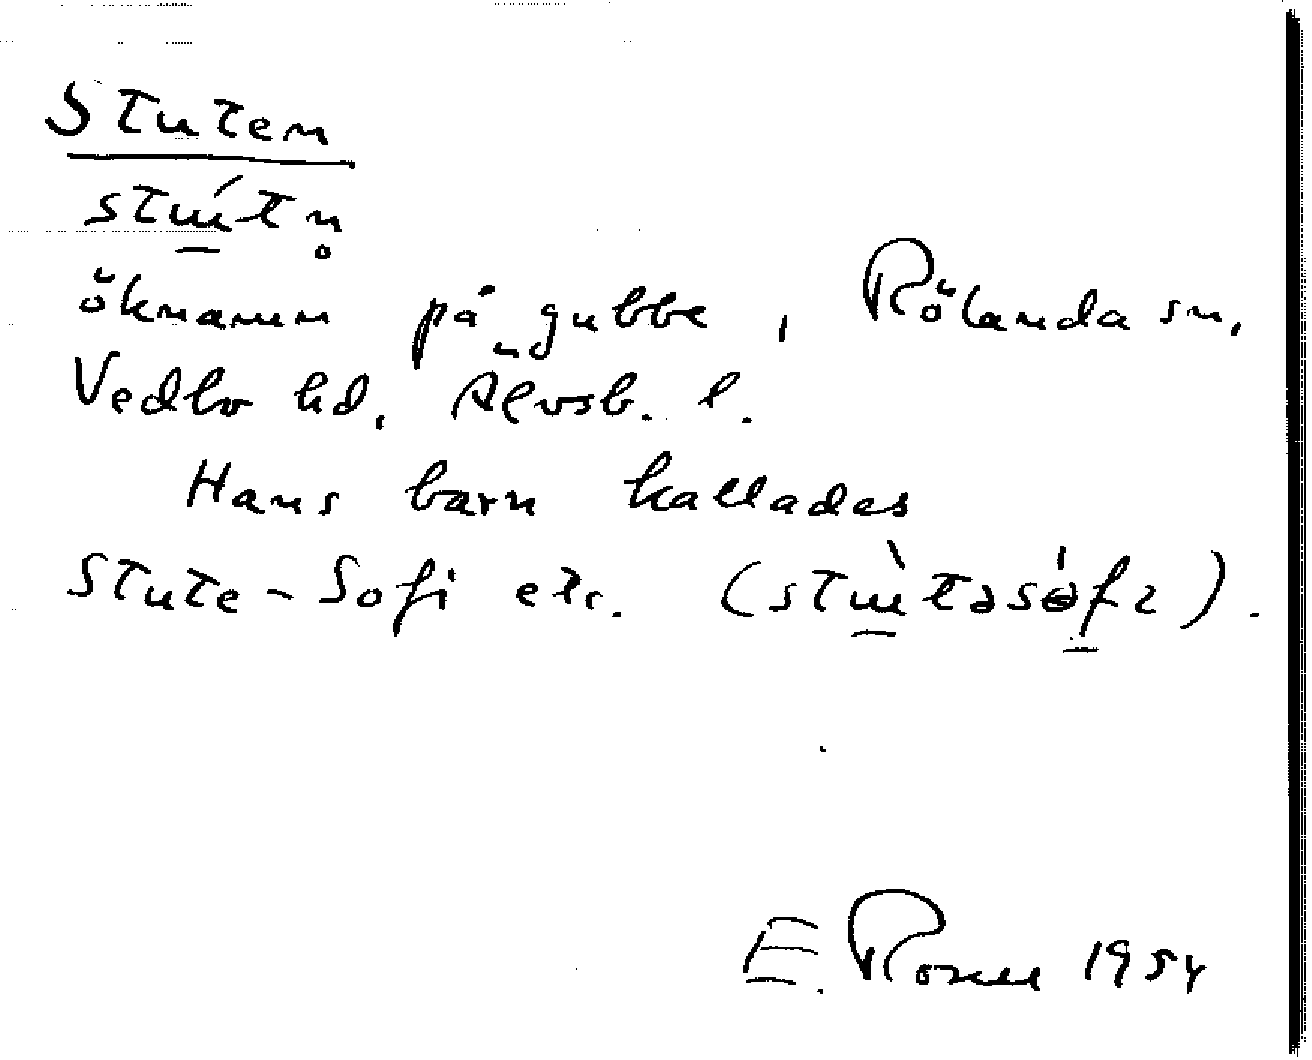 Stuten
stɯ́tn̥
öknamn på gubbe, Rölanda sn,
Vedbo hd, Älvsb. l.
Hans barn kallades
Stute-Sofi etc. (stɯ̀təsófɩ).
E. Rosell 1954